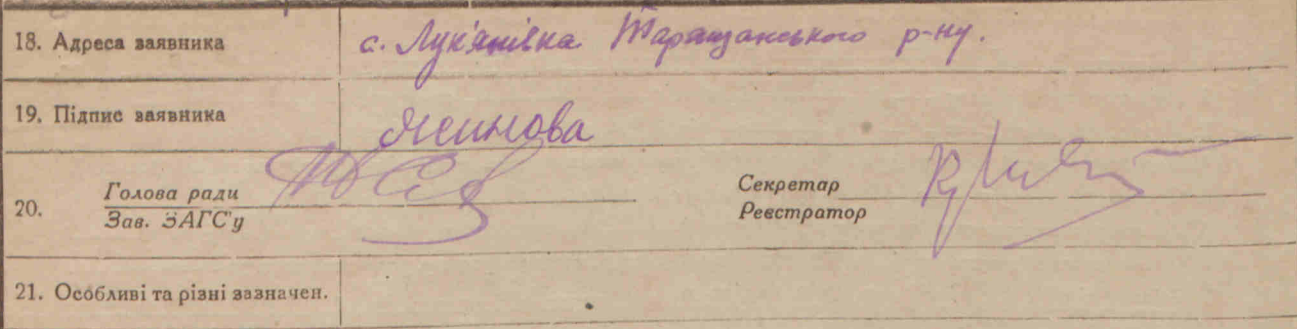 18. Адреса заявника с. Лук'янівка Таращанського р-ну.
19. Підпис заявника
20. Голова ради Секретар
Зав. ЗАГС'у Реєстратор
21. Особливі та різні зазначен.